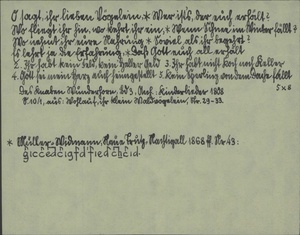 O sagt, ihr lieben Vögelein, * Wer ist's, der euch erhält?
Wo fliegt ihr hin, wo kehrt ihr ein, * Wenn Schnee im Winter fällt?
Wo nehmt ihr eure Nahrung, * soviel als ihr begehrt?
Es lehrt ja die Erfahrung, * Daß Gott euch all ernährt
2. Ihr habt kein Feld, kein Heller Geld 3. Ihr habt nicht Koch noch Keller
4. Gott sei mein Herz auch heimgestellt 5. Kein Sperling von dem Dache fällt
5 x 8
Des Knaben Wunderhorn. Bd 3, Anh: Kinderlieder 1808
S. 101, aus: Wohlauf, ihr klein Waldvögelein, Str. 29-33.
* Müller-Widmann, Neue Nachtigall 1868 Nr. 43:
giccedcigfdfiedcheid